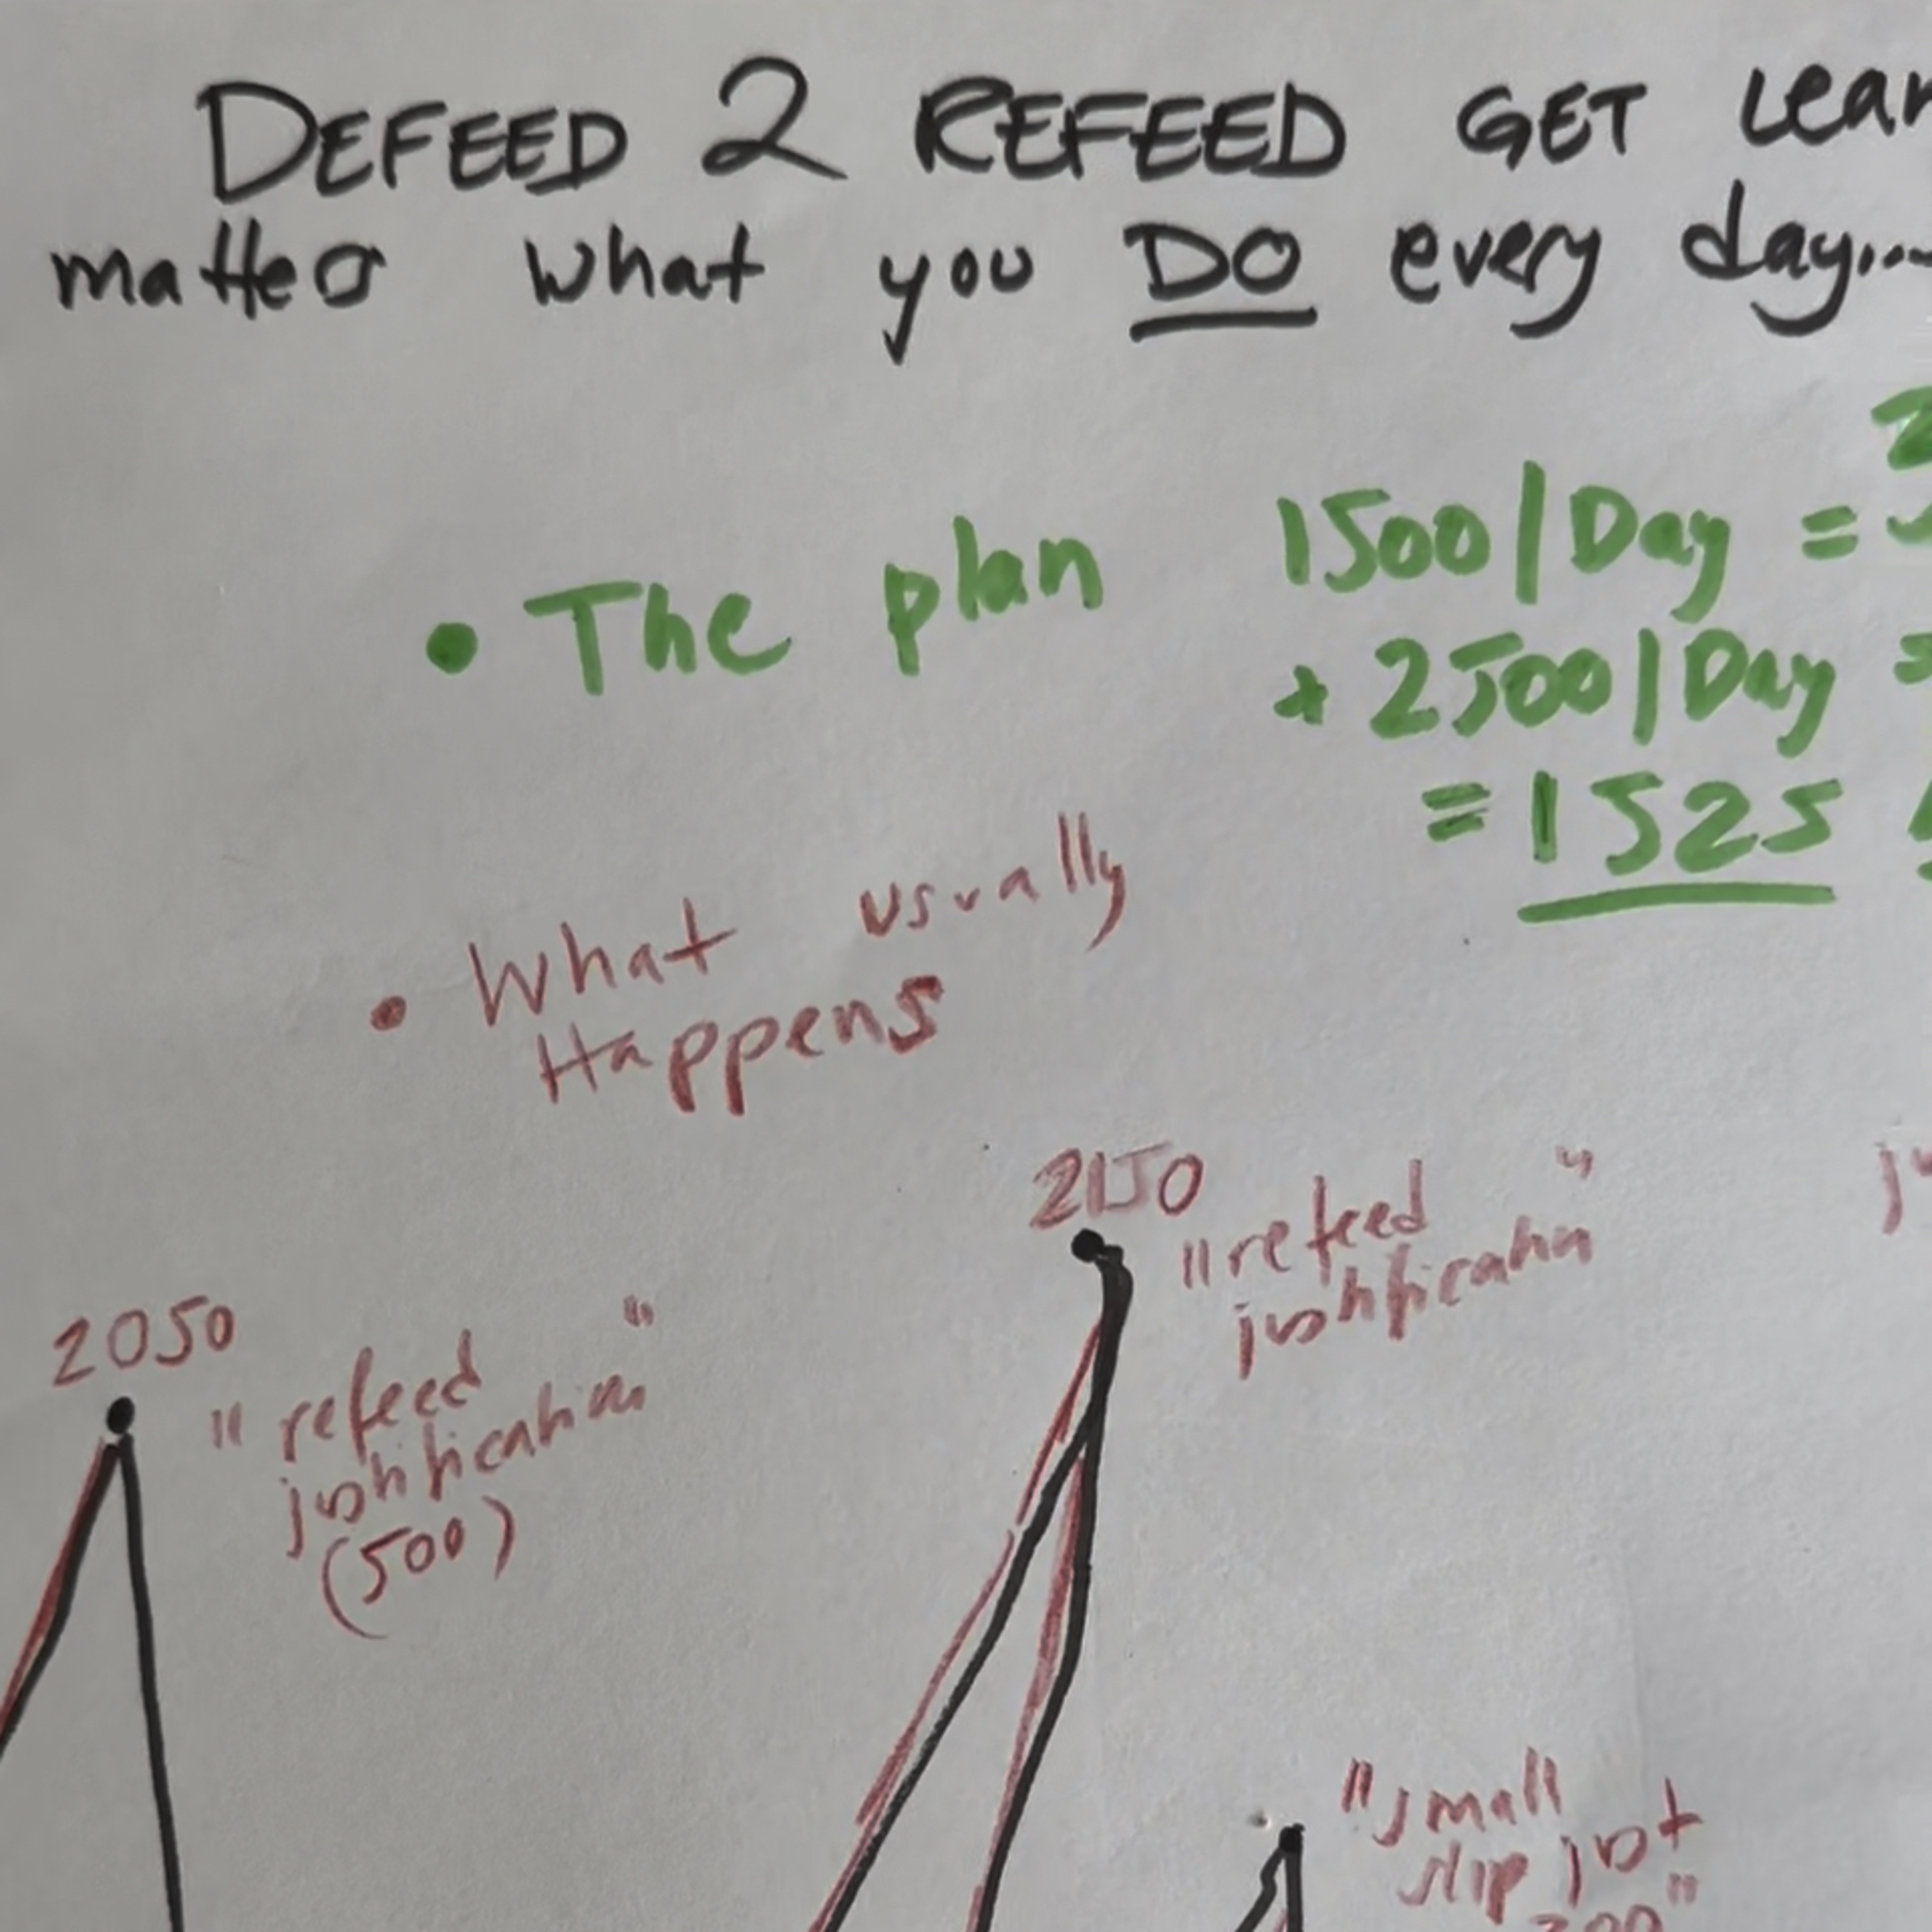 DEFEED 2 REFEED GET Lean
matters what you DO every day...
• The plan 1500/Day =
+ 2500/Day =
= 1525
• What usually
Happens
2150
"refeed
justification"
2050
"refeed
justification"
(500)
"small
slip just
200"